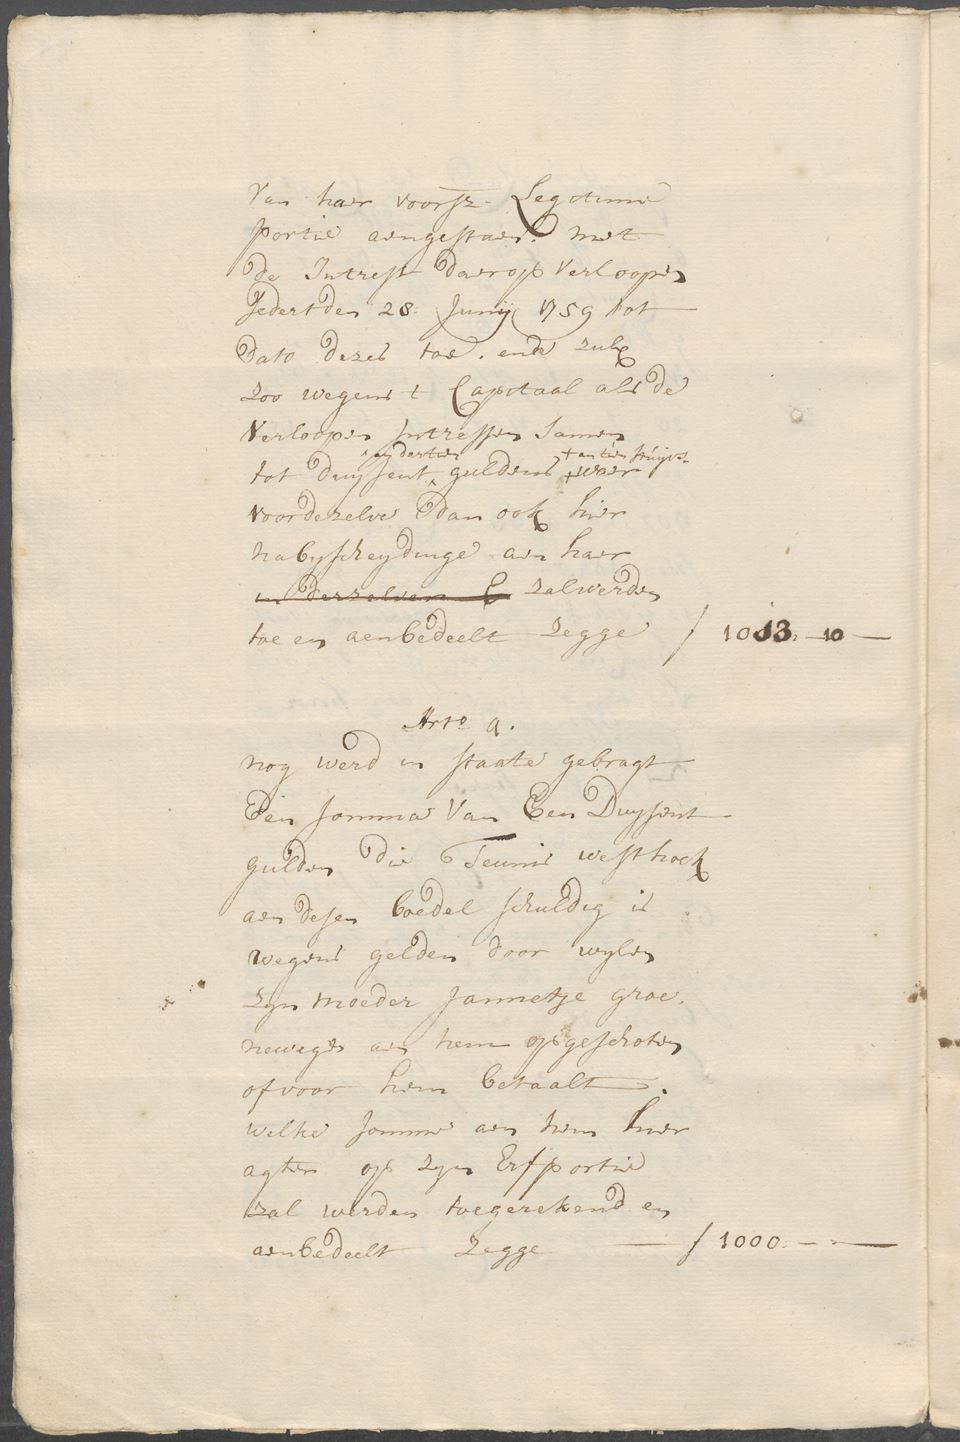 Van haer voorsz. Legetime
portie aengestaen. met
de Intrest daerop Verloopen
Zedert den 28: Junij 1759 tot
dato dezes toe. ende zulx
zoo wegens t Capitaal als de
Verloopen Intressen samen
tot duysent gulden waer
en dertien tien stuijvs.
voor dezelve dan ook hier
na by scheydinge aen haer
in derzelver zal werden
toe en aenbedeelt Zegge f 1013:-10-
Arto 9.
nog werd in staate gebragt
Een somma Van Een Duysent
gulden die Teunis westhoek
aen desen boedel schuldig is
wegens gelden door wylen
zyn moeder Jannetje groe-
neweges aen hem opgeschoten
of voor hem betaalt.
welke somme aen hem hier
agter op zyn Erfportie
zal werden toegerekend en
aenbedeelt Zegge - f 1000:-"-